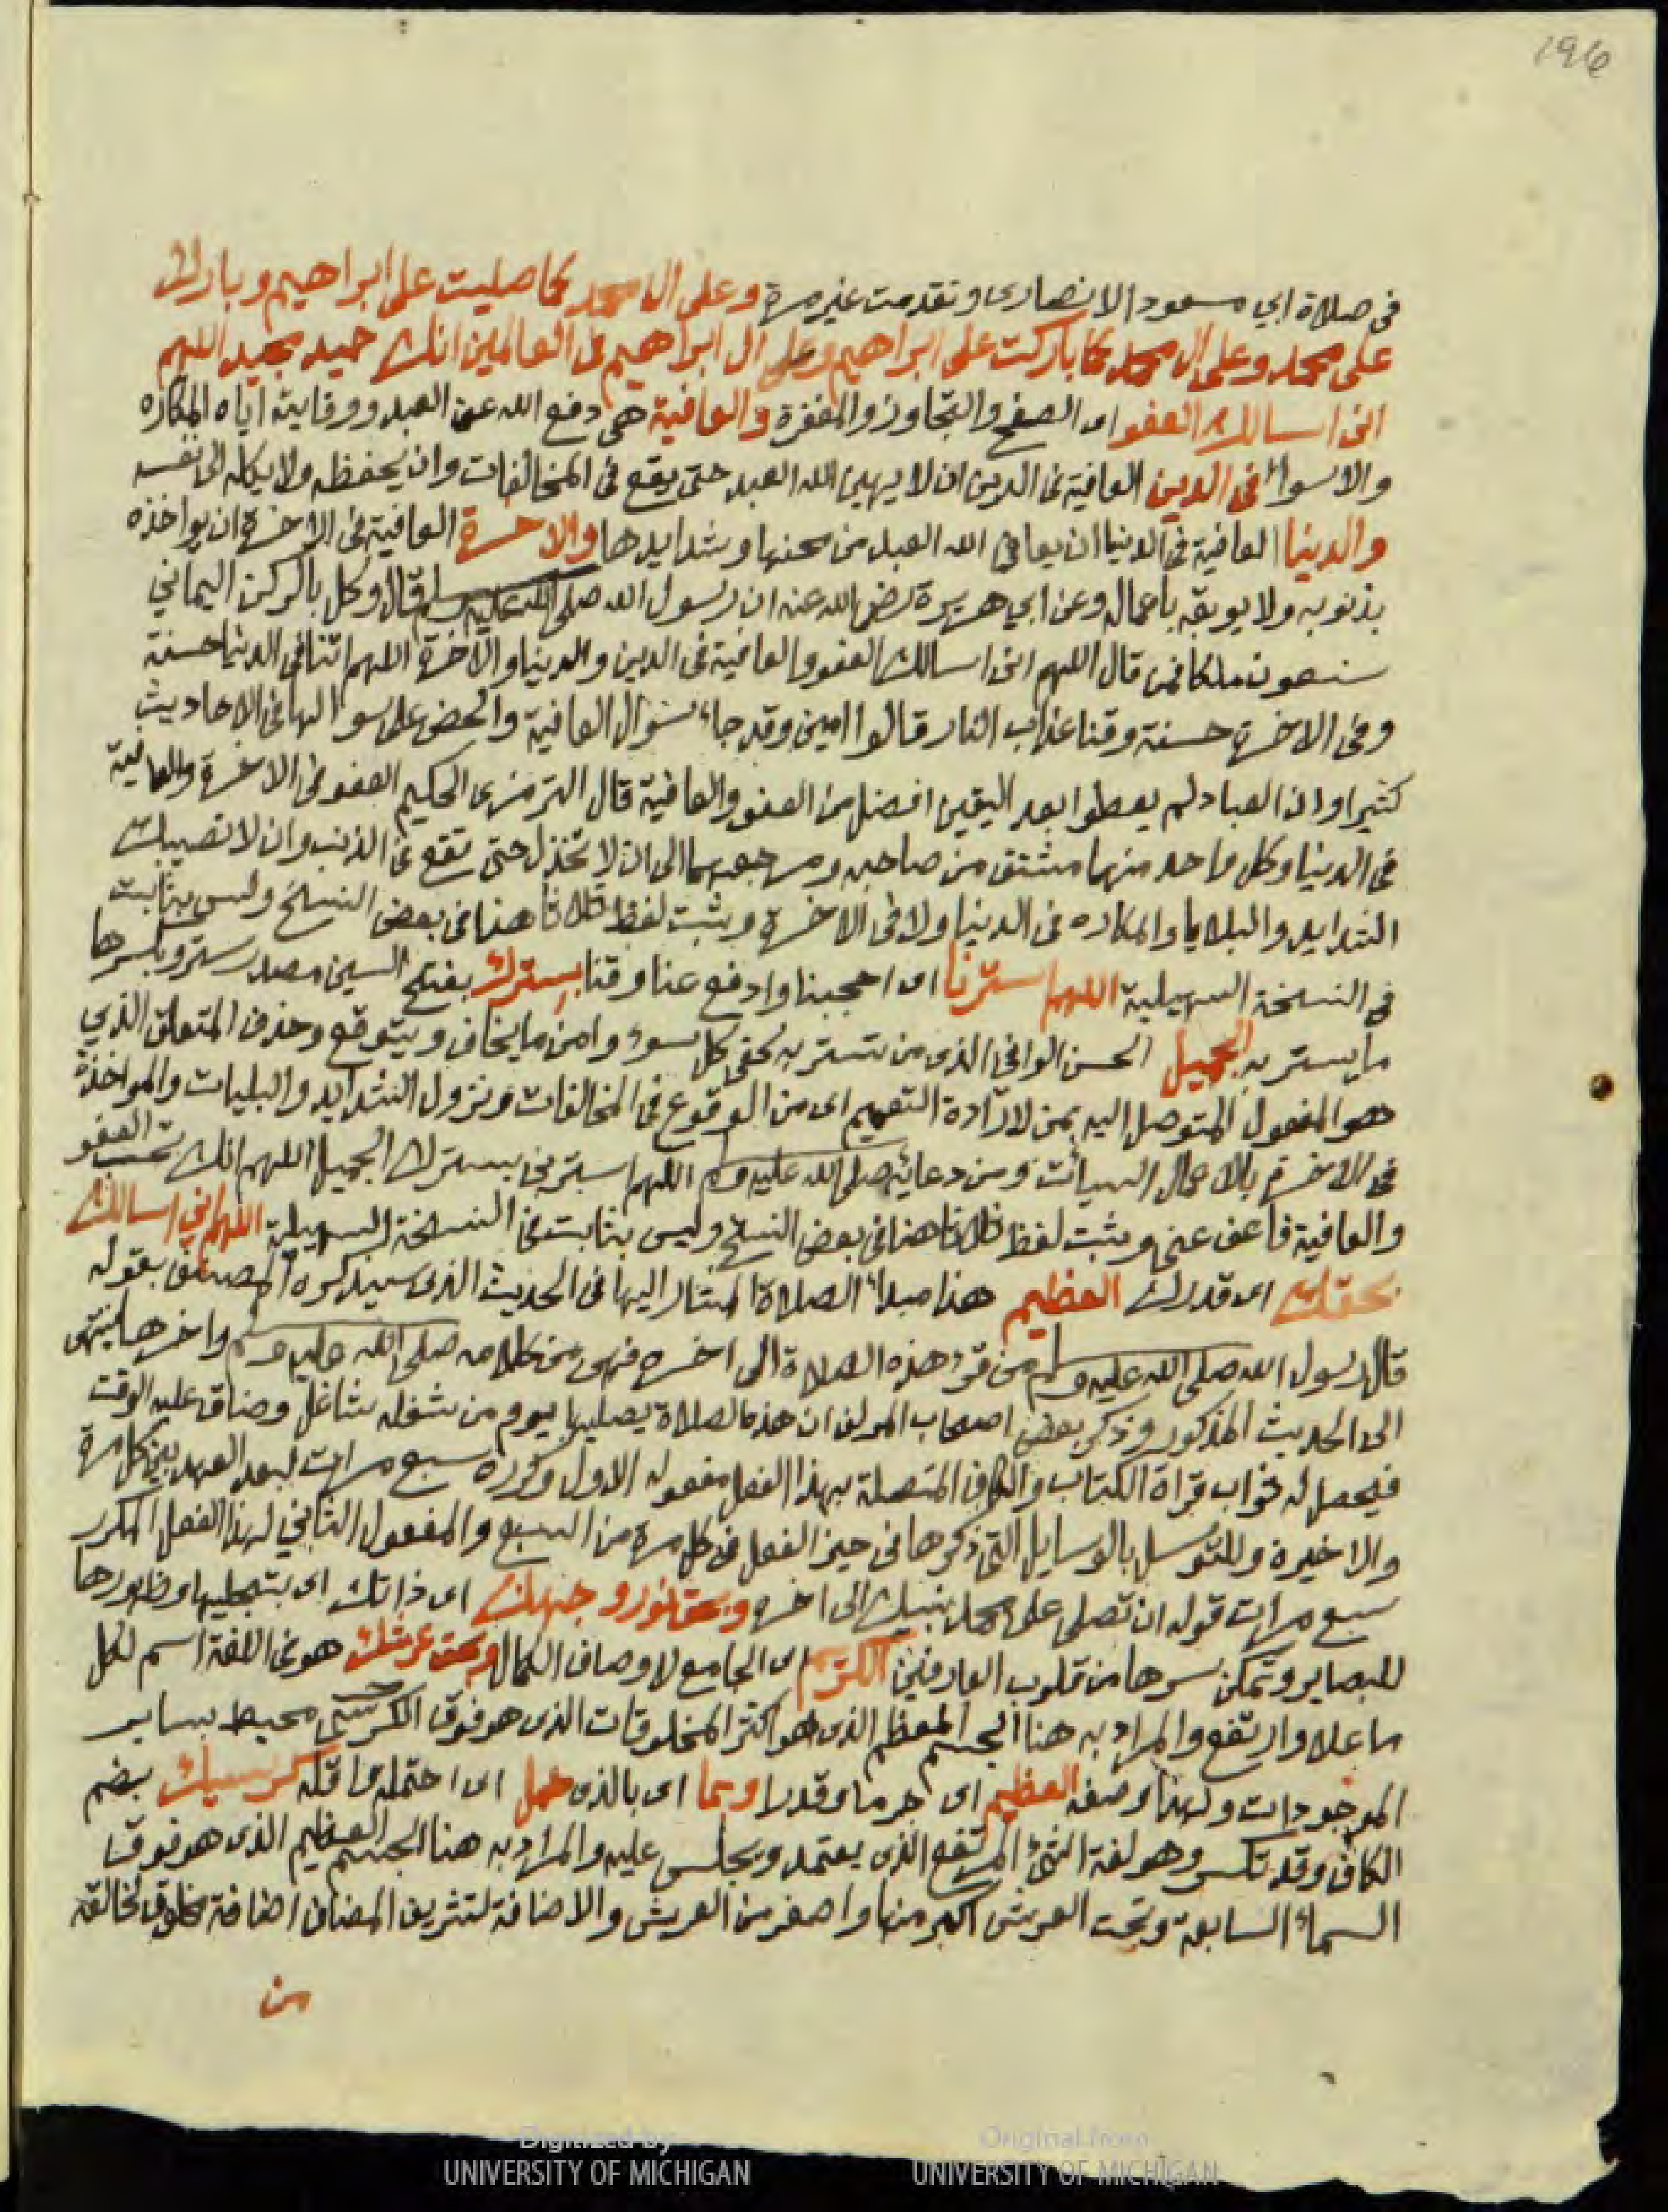 196
في صلاة ابي مسعود الانصارى وتقدمت غير مرة وعلى ال محمد كما صليت على ابراهيم وبارك
على محمد وعلى ال محمد كما باركت على ابراهيم وعلى ال ابراهيم فى العالمين انك حميد مجيد اللهم
انى اسالك العفو اى الصفح والتجاوز والمغفرة والعافية هى دفع الله عن العبد ووقايته اياه المكاره
والاسواء فى الدين العافية فى الدين ان لا يهين الله العبد حتى يقع فى المخالفات وان يحفظه ولا يكله الى نفسه
والدنيا العافية فى الدنيا ان يعافى الله العبد من محنها وشدايدها والاخرة العافية فى الاخرة ان يواخذه
بذنوبه ولا يوبقه باعماله وعن ابي هريرة رضى الله عنه ان رسول الله صلى الله عليه وسلم قال وكل بالركن اليماني
سبعون ملكا فمن قال اللهم انى اسالك العفو والعافية فى الدين والدنيا والاخرة اللهم اتنا فى الدنيا حسنة
وفى الاخرة حسنة وقنا عذاب النار قالوا امين وقد جاء سؤال العافية والحض على سوالها فى الاحاديث
كثيرا وان العباد لم يعطوا بعد اليقين افضل من العفو والعافية قال الترمذى الحكيم العفو فى الاخرة والعافية
فى الدنيا وكل واحد منهما مشتق من صاحبه ومرجعهما الى ان لا تخذل حتى تقع فى الذنب وان لا تصيبك
الشدايد والبلايا والمكاره فى الدنيا ولا فى الاخرة ويثبت لفظ ثلاثا هنا فى بعض النسخ وليس بثابت
فى النسخة السهيلية اللهم استرنا اى احجبنا وادفع عنا وقنا بسترك بفتح السين مصدر ستر وبكسرها
ما يستر به الجميل الحسن الوافى الذى من تستر به كفى كل سوء وامن ما يخاف ويتوقع وحذف المتعلق الذي
هو المفعول المتوصل اليه بمن لارادة التعميم اى من الوقوع فى المخالفات ونزول الشدايد والبليات والمواخذة
فى الاخرة بالاعمال السيات ومن دعائه صلى الله عليه وسلم اللهم استرنى بسترك الجميل اللهم انك تحب العفو
والعافية فاعف عنى ويثبت لفظ ثلاثا هنا فى بعض النسخ وليس بثابت فى النسخة السهيلية اللهم اني اسالك
بحقك اى قدرك العظيم هذا مبدأ الصلاة المشار اليها فى الحديث الذى سيذكره المصنف بقوله
قال رسول الله صلى الله عليه وسلم من قرء هذه الصلاة الى اخره فهى من كلامه صلى الله عليه وسلم واخرها ينتهى
الى الحديث المذكور وذكر بعض اصحاب المولف ان هذه الصلاة يصليها يوم من شغله شاغل وضاق عليه الوقت
فيحصل له ثواب قراة الكتاب والكاف المتصلة بهذا الفعل مفعوله الاول وكرره سبع مرات لبعد العهد بين كل مرة
والاخيرة وللتوسل بالوسايل التى ذكرها فى حيز الفعل فى كل مرة من السبع والمفعول الثاني لهذا الفعل المكرر
سبع مرات قوله ان تصلى على محمد نبيك الى اخره وبحق نور وجهك اى ذاتك اى بتجليها وظهورها
للبصاير وتمكن سرها من قلوب العارفين الكريم اى الجامع لاوصاف الكمال وبحق عرشك هو فى اللغة اسم لكل
ما علا وارتفع والمراد به هنا الجسم المعظم الذى هو اكثر المخلوقات الذى هو فوق الكرسى محيط بساير
الموجودات ولهذا وصفه العظيم اى جرما وقدرا وبما اى بالذى حمل اى احتمل واقله كرسيك بضم
الكاف وقد تكسر وهو لغة الشئ المرتفع الذى يعتمد ويجلس عليه والمراد به هنا الجسم العظيم الذى هو فوق
السماء السابعة وتحت العرش اكبر منها واصغر من العرش والاضافة لتشريف المضاف اضافة مخلوق لخالقه
من
Digitized by
UNIVERSITY OF MICHIGAN
Original from
UNIVERSITY OF MICHIGAN